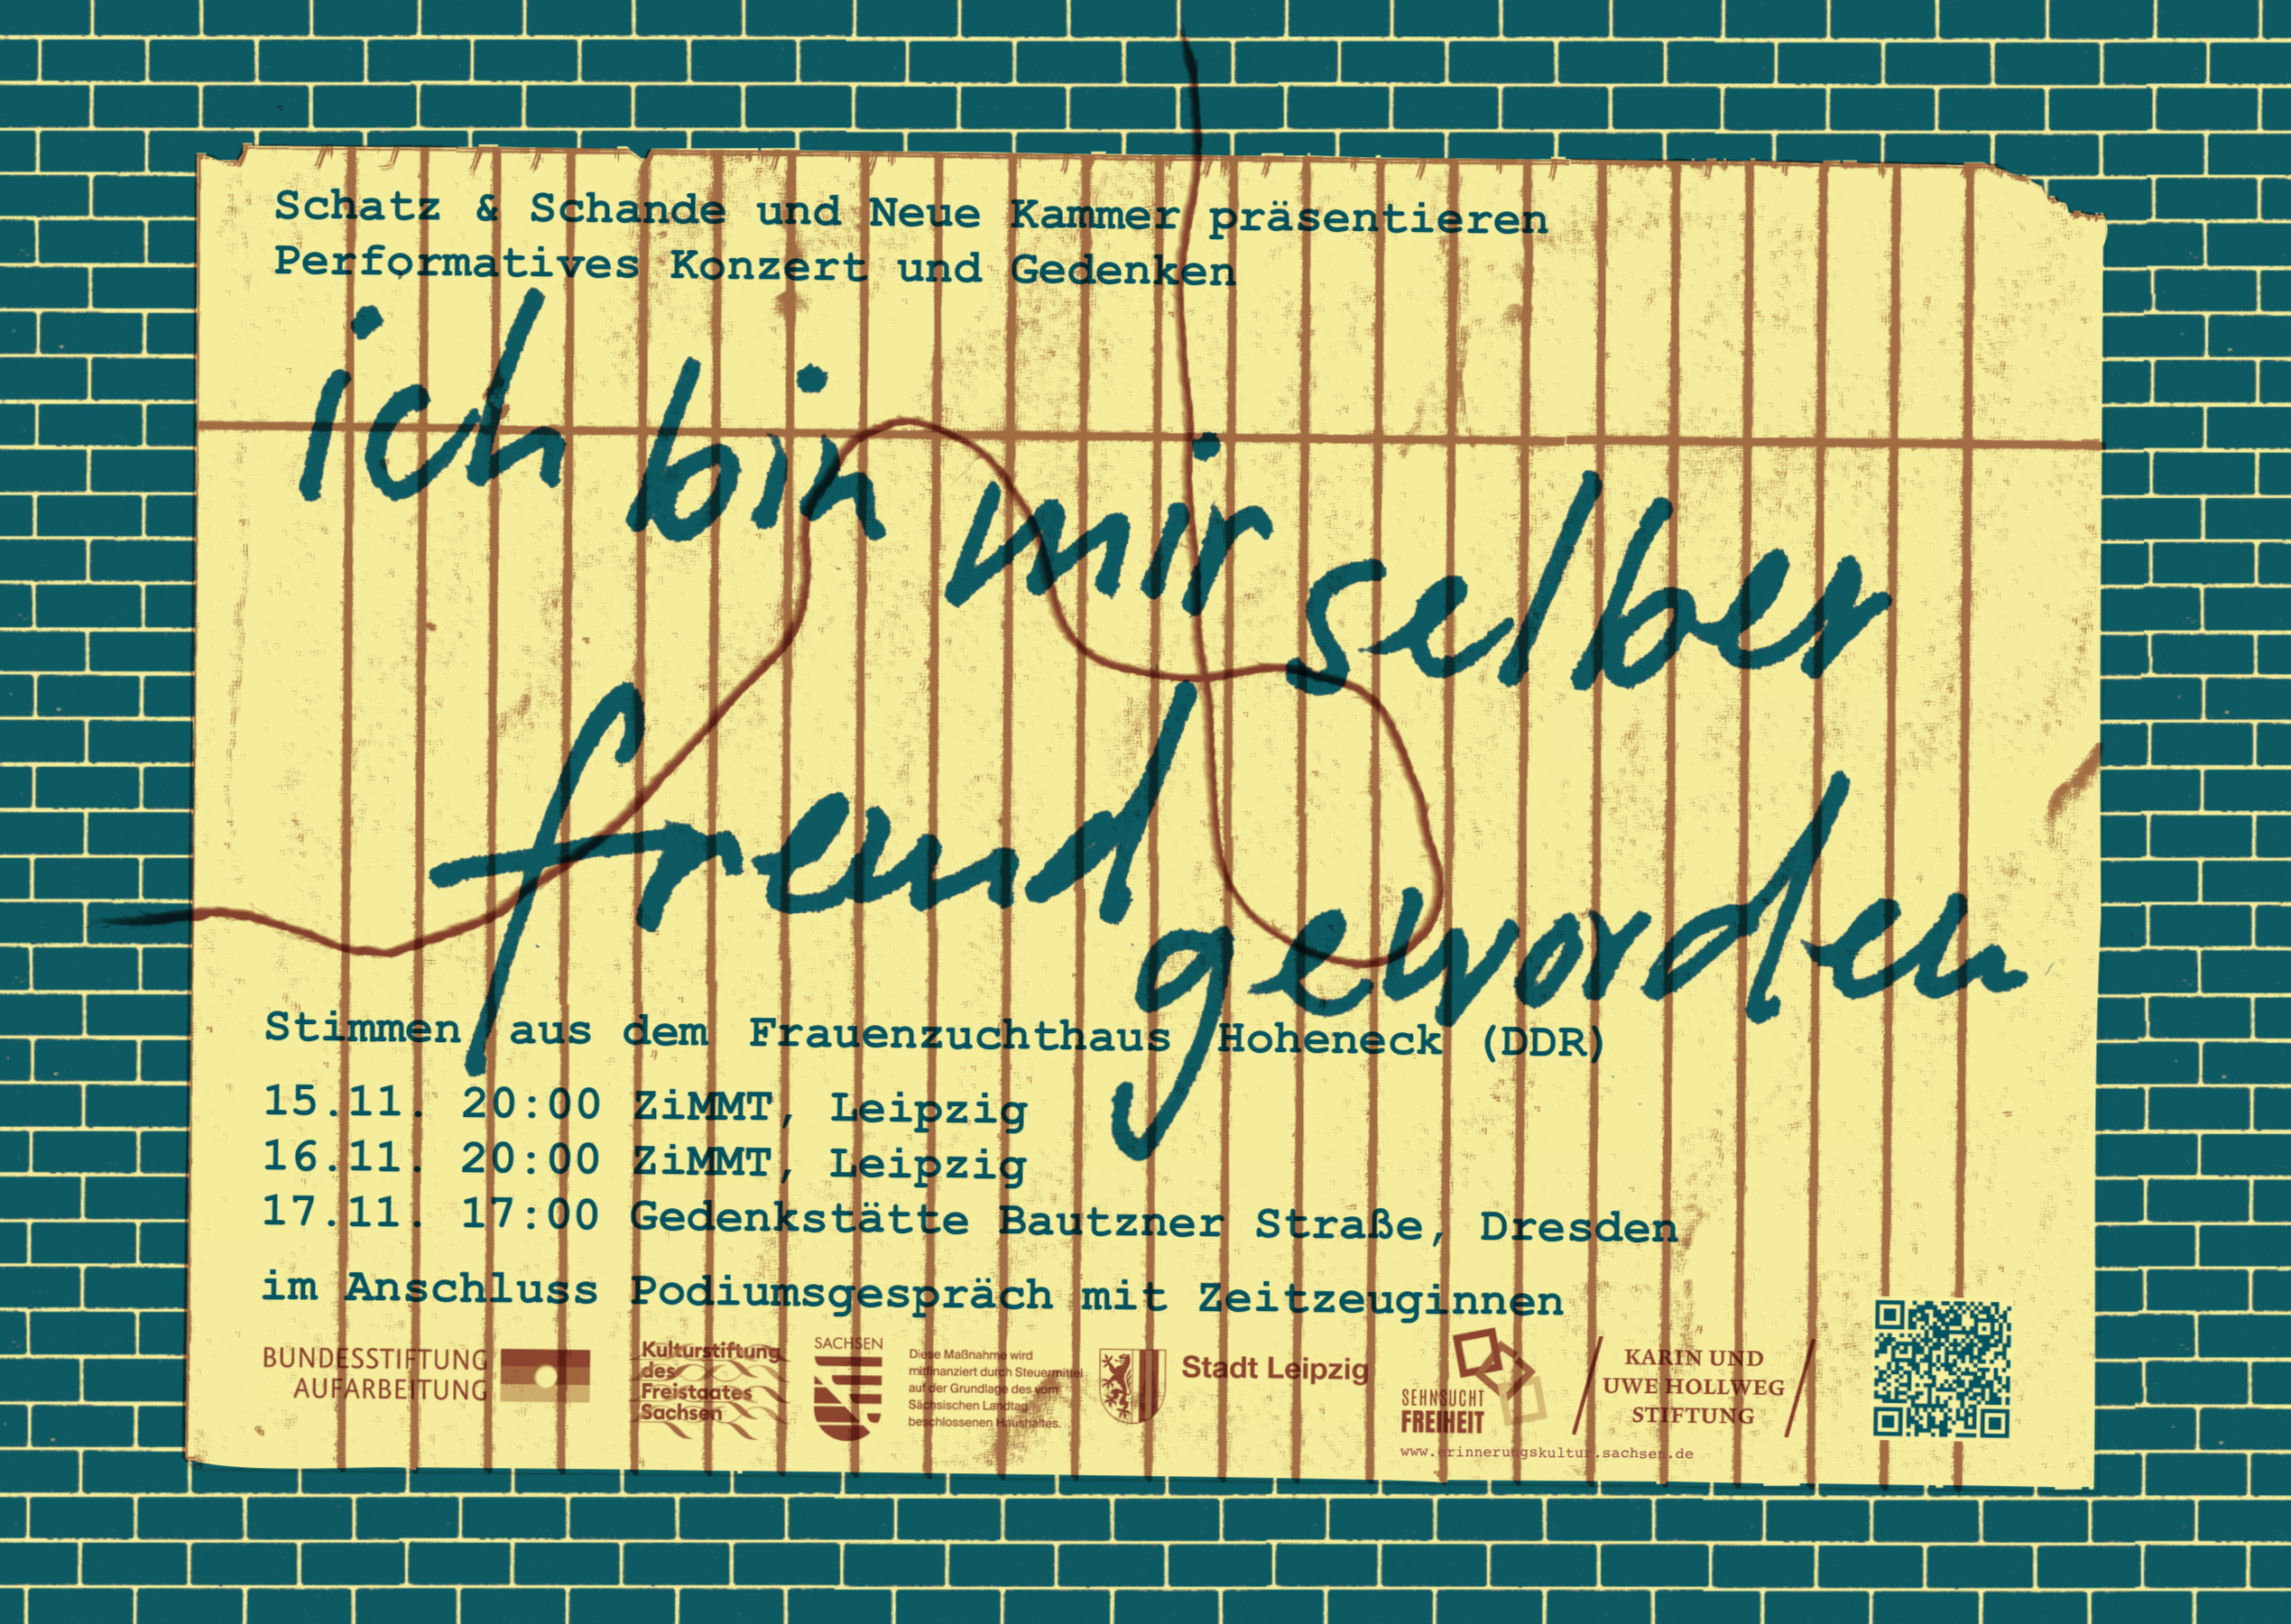 Schatz & Schande und Neue Kammer präsentieren
Performatives Konzert und Gedenken
ich bin mir selber
fremd geworden
Stimmen aus dem Frauenzuchthaus Hoheneck (DDR)
15.11. 20:00 ZiMMT, Leipzig
16.11. 20:00 ZiMMT, Leipzig
17.11. 17:00 Gedenkstätte Bautzner Straße, Dresden
im Anschluss Podiumsgespräch mit Zeitzeuginnen
BUNDESSTIFTUNG
AUFARBEITUNG
Kulturstiftung
des
Freistaates
Sachsen
SACHSEN
Diese Maßnahme wird
mitfinanziert durch Steuermittel
auf der Grundlage des vom
Sächsischen Landtag
beschlossenen Haushaltes.
Stadt Leipzig
SEHNSUCHT
FREIHEIT
www.erinnerungskultur.sachsen.de
KARIN UND
UWE HOLLWEG
STIFTUNG